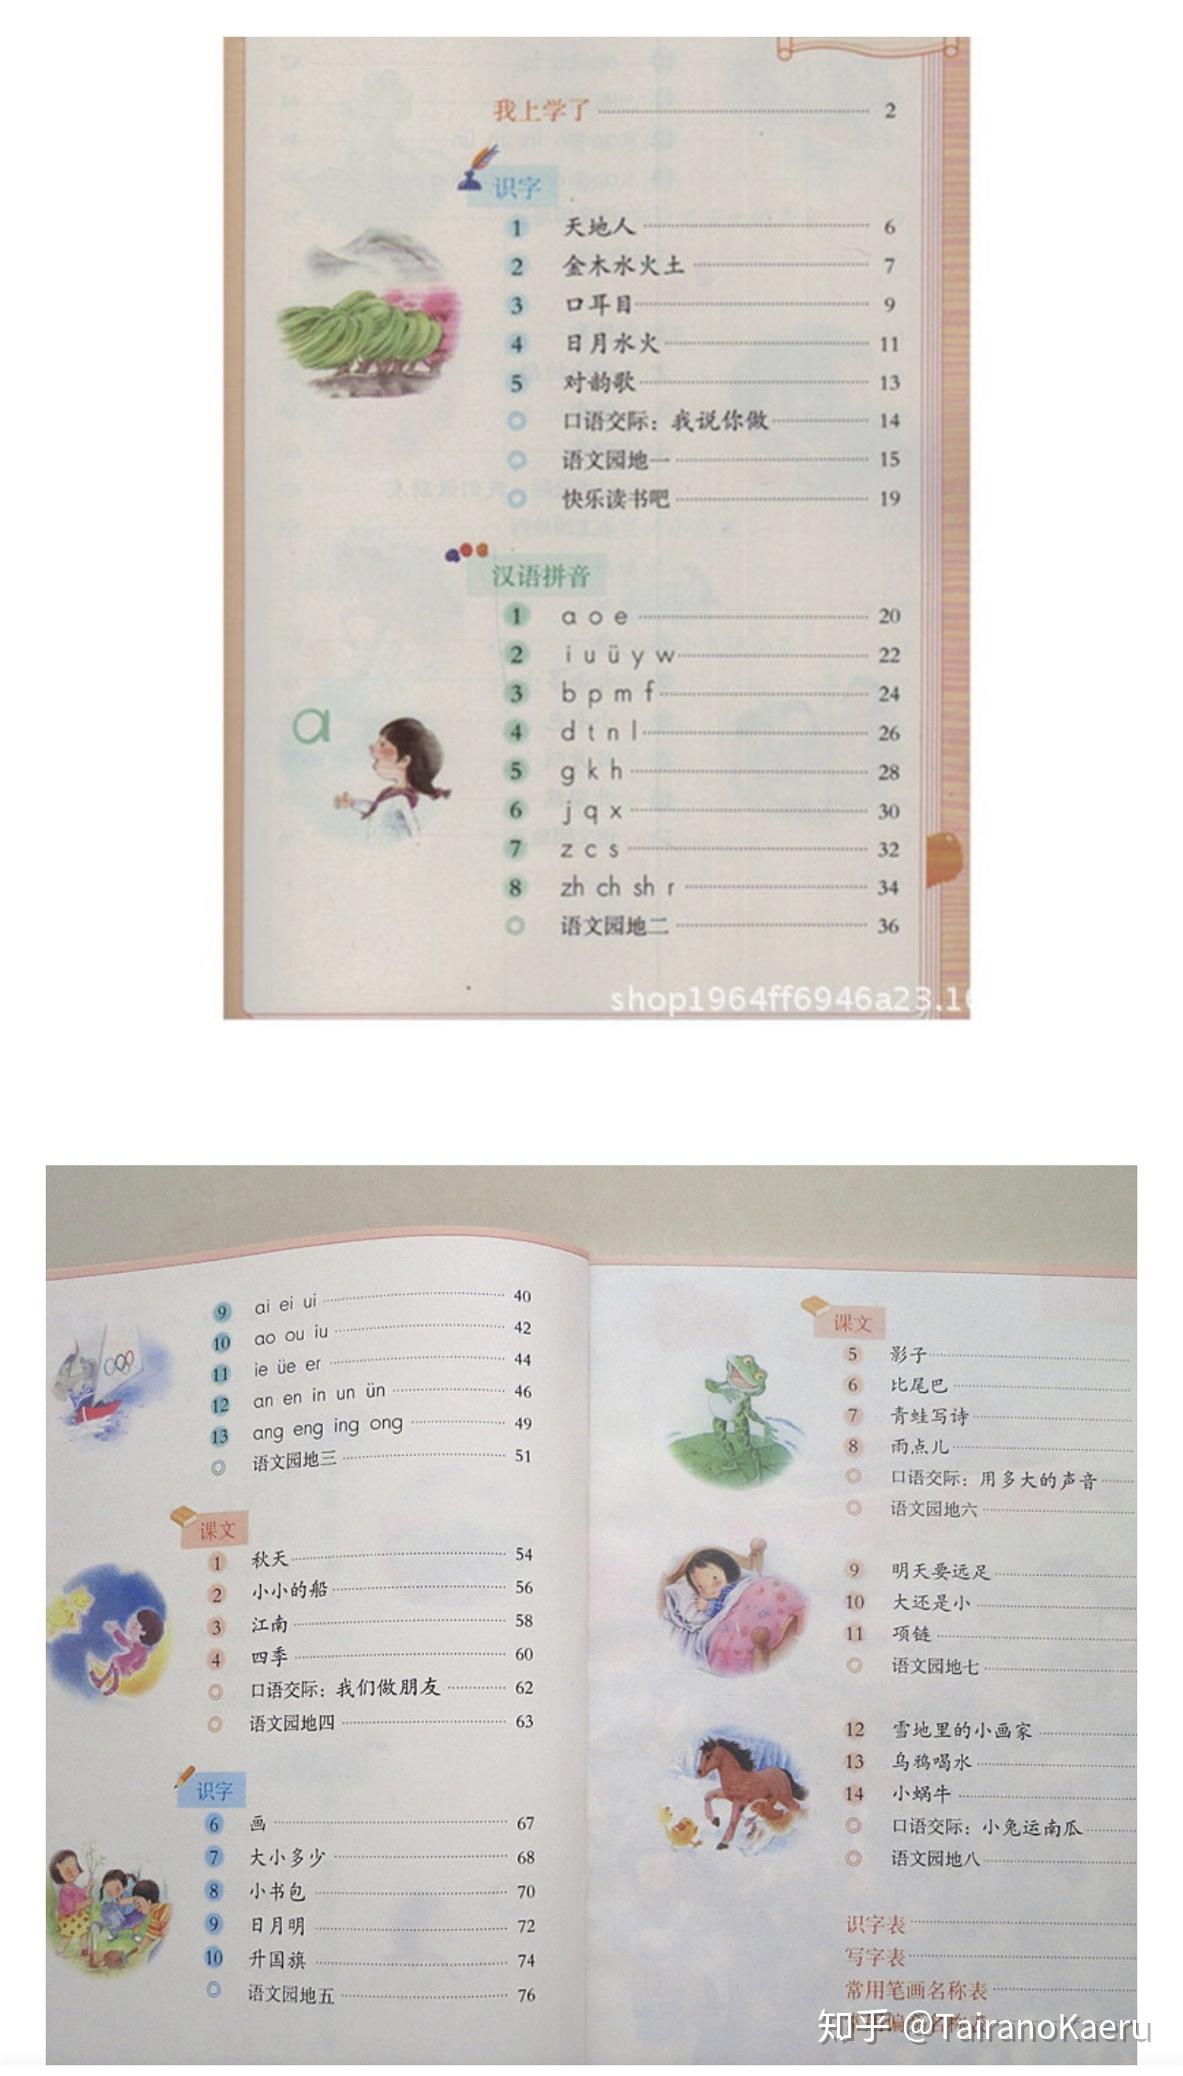 我上学了 2
识字
1 天地人 6
2 金木水火土 7
3 口耳目 9
4 日月水火 11
5 对韵歌 13
口语交际：我说你做 14
语文园地一 15
快乐读书吧 19
汉语拼音
1 a o e 20
2 i u ü y w 22
3 b p m f 24
4 d t n l 26
5 g k h 28
6 j q x 30
7 z c s 32
8 zh ch sh r 34
语文园地二 36
a
shop1964ff6946a23.16
9 ai ei ui 40
10 ao ou iu 42
11 ie üe er 44
12 an en in un ün 46
13 ang eng ing ong 49
语文园地三 51
课文
1 秋天 54
2 小小的船 56
3 江南 58
4 四季 60
口语交际：我们做朋友 62
语文园地四 63
识字
6 画 67
7 大小多少 68
8 小书包 70
9 日月明 72
10 升国旗 74
语文园地五 76
课文
5 影子
6 比尾巴
7 青蛙写诗
8 雨点儿
口语交际：用多大的声音
语文园地六
9 明天要远足
10 大还是小
11 项链
语文园地七
12 雪地里的小画家
13 乌鸦喝水
14 小蜗牛
口语交际：小兔运南瓜
语文园地八
识字表
写字表
常用笔画名称表
知乎 @TairanoKaeru